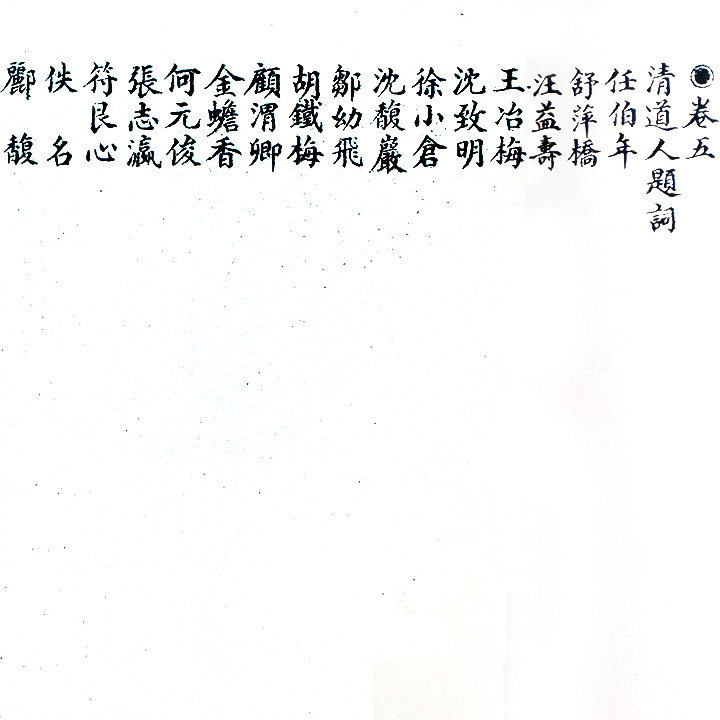 ◉卷五
清道人題詞
任伯年
舒萍橋
汪益壽
王冶梅
沈致明
徐小倉
沈馥巖
鄒幼飛
胡鐵梅
顧渭卿
金蟾香
何元俊
張志瀛
符艮心
佚名
酈馥